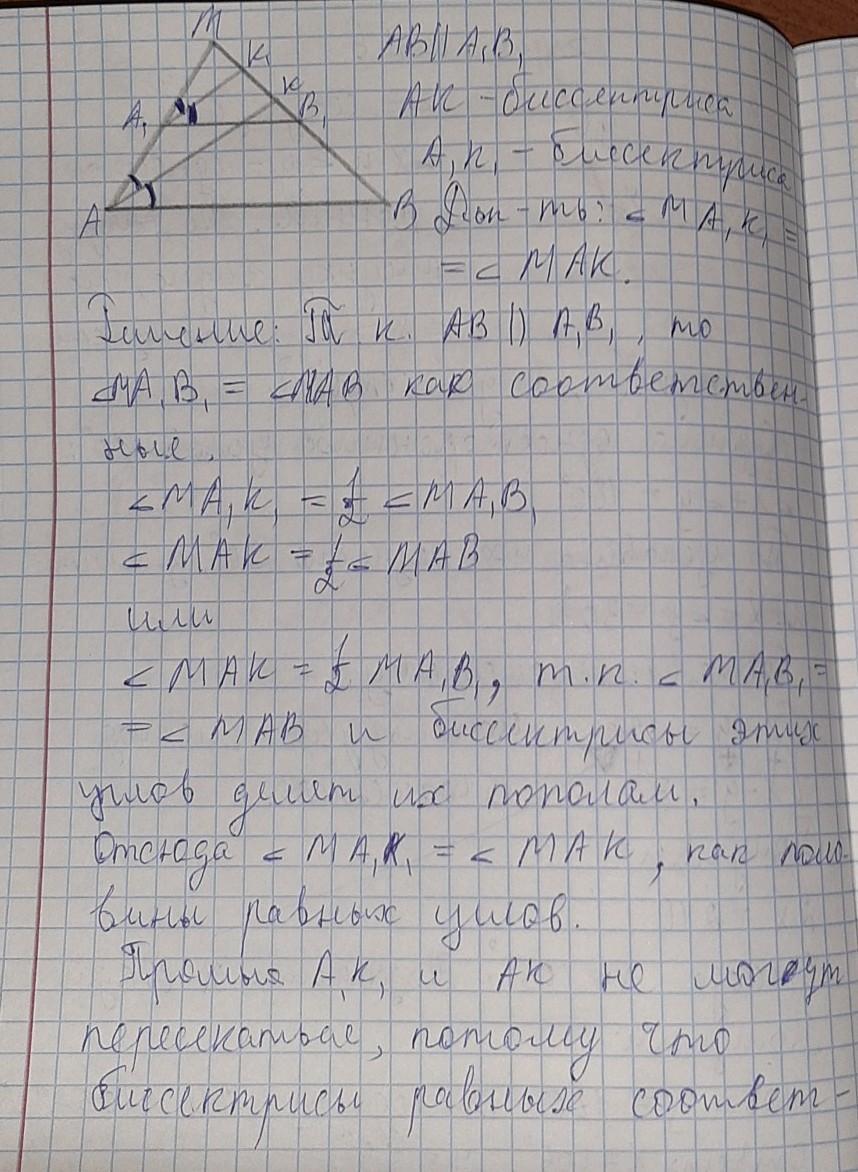 M
K₁
K
A₁
B₁
A
B
AB || A₁B₁
AK - биссектриса
A₁K₁ - биссектриса
Док-ть: ∠MA₁K₁ =
= ∠MAK.
Решение: Т. к. AB || A₁B₁, то
∠MA₁B₁ = ∠MAB как соответствен-
ные.
∠MA₁K₁ = 1/2 ∠MA₁B₁
∠MAK = 1/2 ∠MAB
или
∠MAK = 1/2 MA₁B₁, т.к. ∠MA₁B₁ =
= ∠MAB и биссектрисы этих
углов делят их пополам.
Отсюда ∠MA₁K₁ = ∠MAK, как поло-
вины равных углов.
Прямые A₁K₁ и AK не могут
пересекаться, потому что
биссектрисы равных соответ-